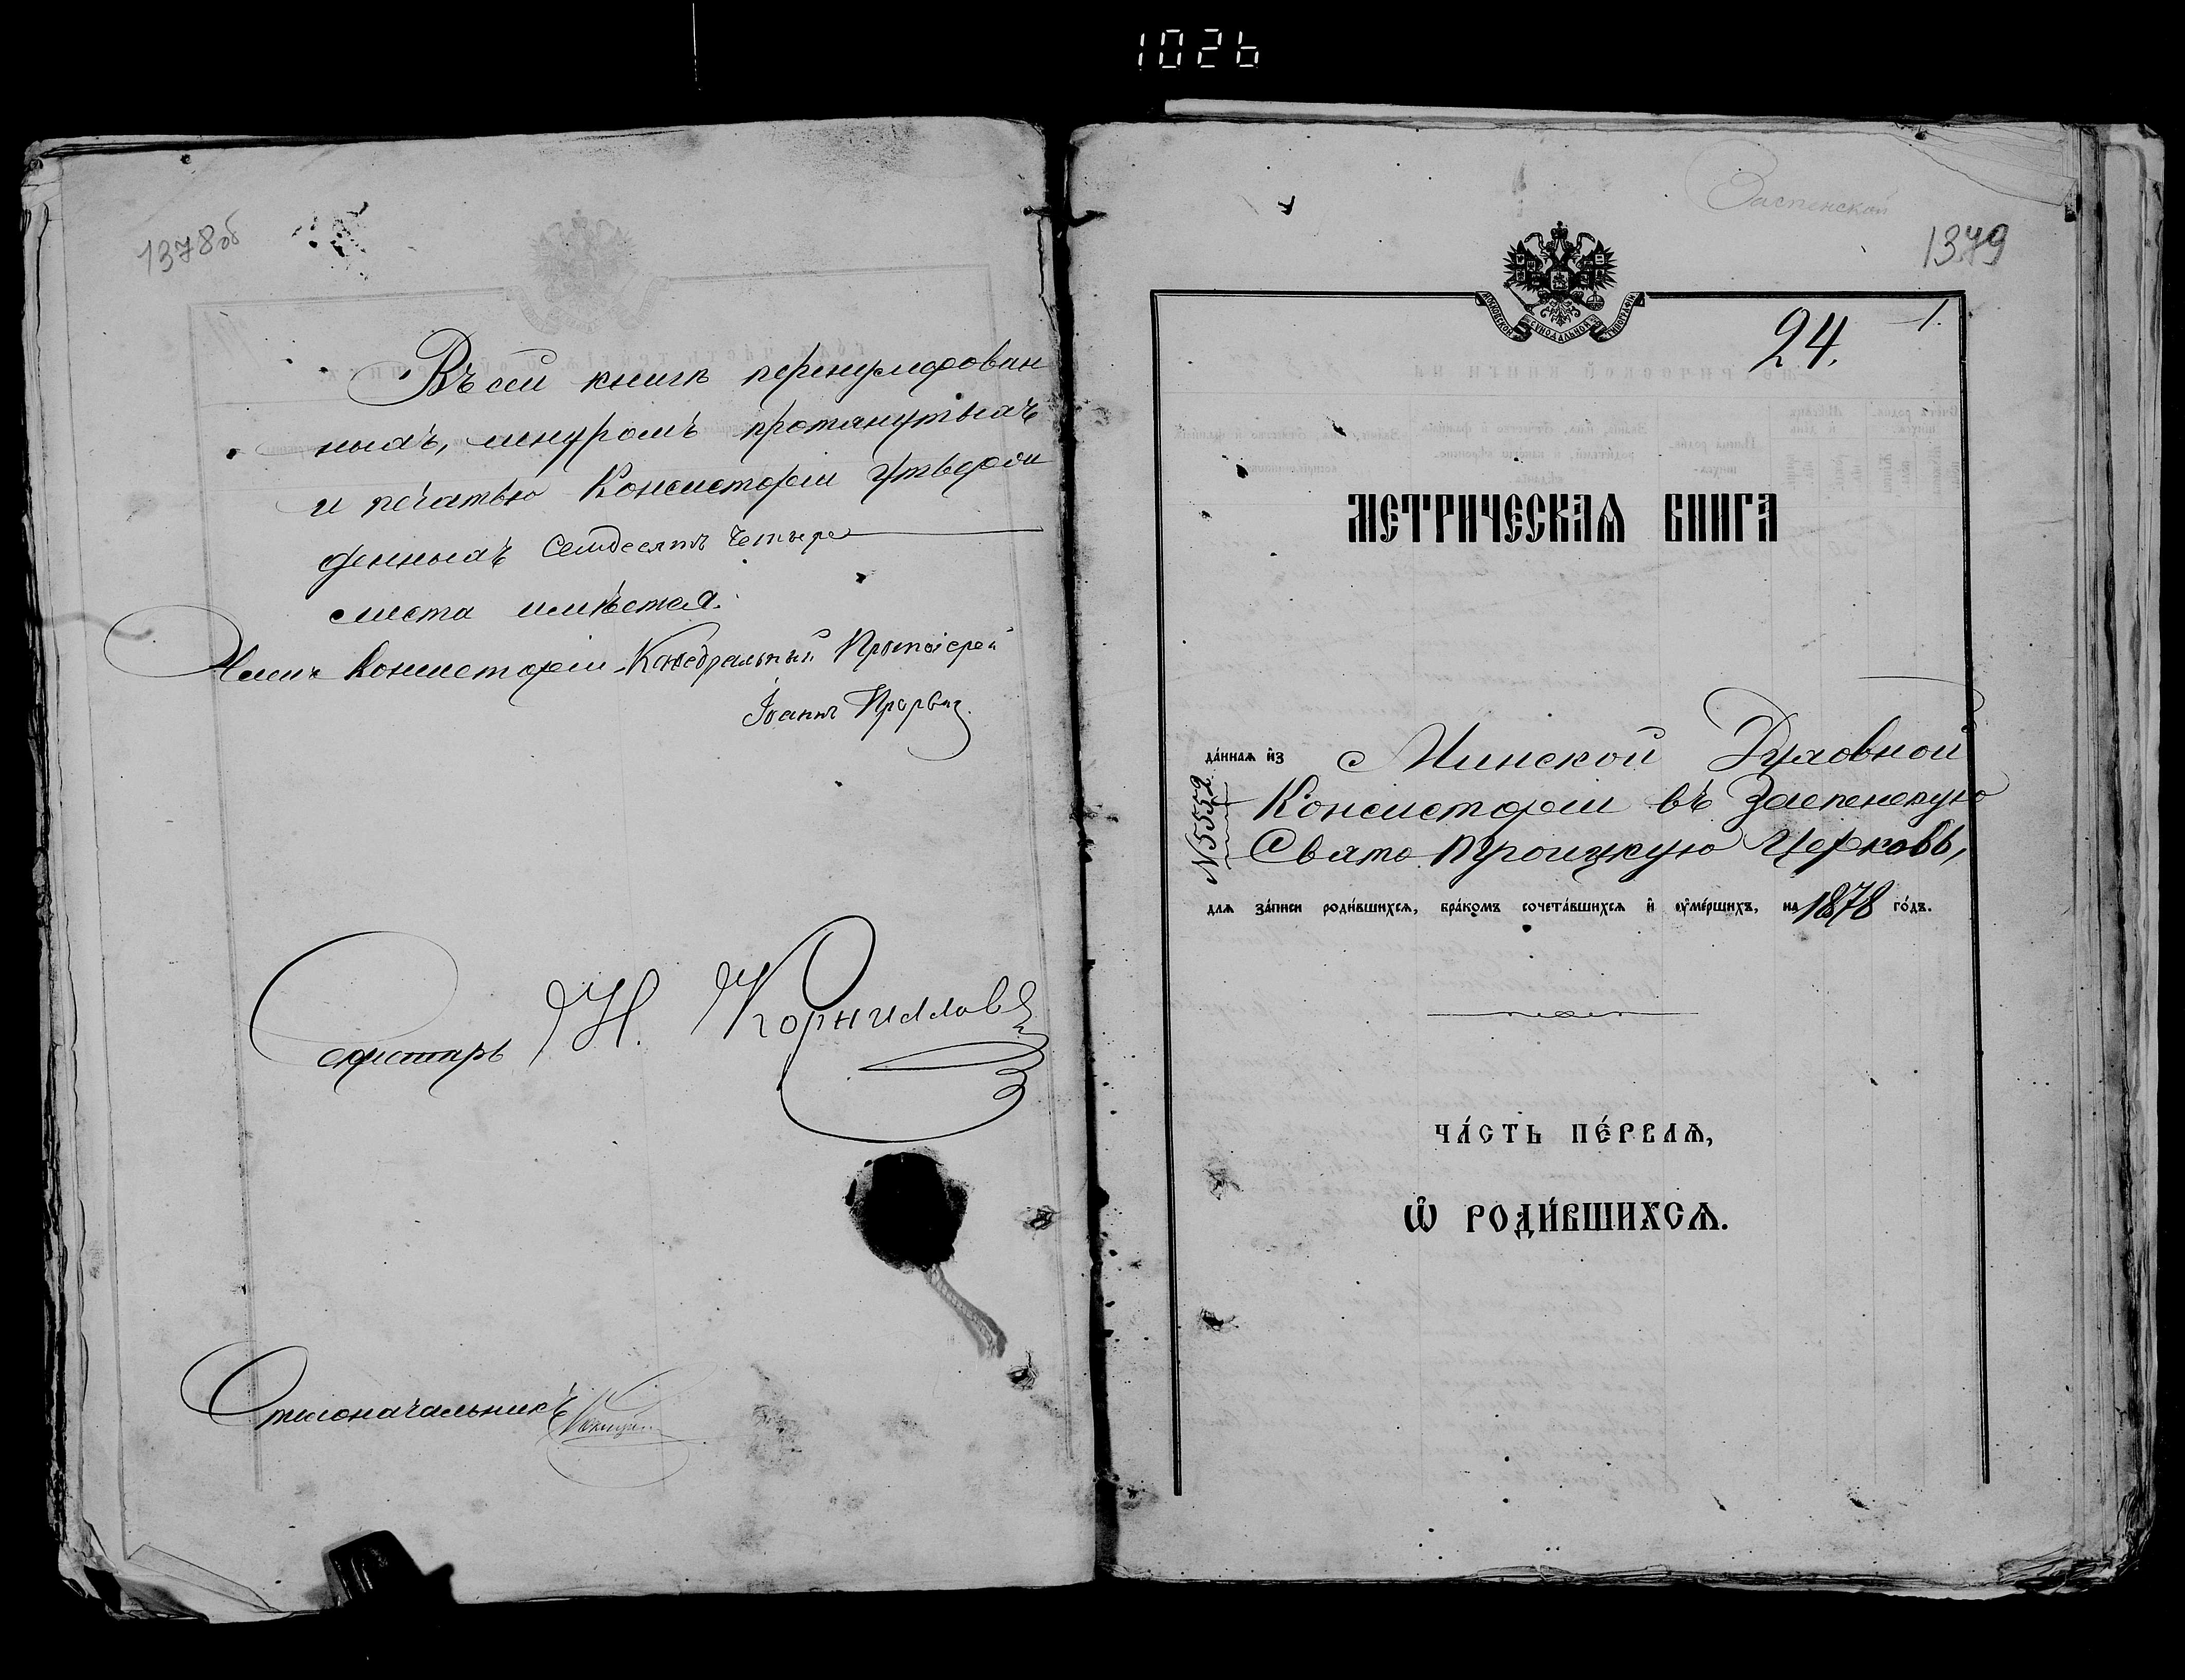 1026
1378об
Въ сей книгѣ перенумерован
ныхъ, шнуромъ протянутыхъ
и печатью Консисторіи утверж
денныхъ семдесятъ четыре
листа имѣется.
Членъ Консисторіи Каѳедральный Протоіерей
Іоаннъ
Секретарь Н. Корниловъ
Столоначальникъ
Заспенской
1379
МОСКОВСКОЙ СѴНОДАЛЬНОЙ ТИПОГРАФІИ
24. 1.
МЕТРИЧЕСКАѦ КНИГА
да́ннаѧ и҆з Минской Духовной
№ 5552
Консисторіи въ Заспенскую
Свято Троицкую Церковь,
длѧ за́писи роди́вшихсѧ, бра́комъ сочета́вшихсѧ и҆ ᲂу҆ме́ршихъ, на 1878 го́дъ.
ЧА́СТЬ ПЕ́РВАѦ,
Ѡ҆ РОДИ́ВШИХСѦ.